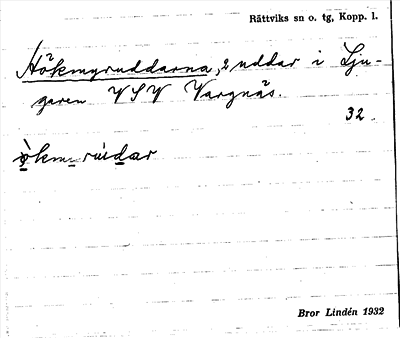 Rättviks sn o. tg, Kopp. l.
Hökmyruddarna, 2 uddar i Lju-
garen VSV Vargnäs.
32
Bror Lindén 1932